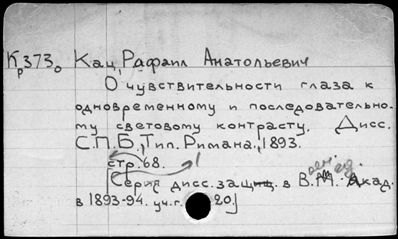 Кр373о Кац, Рафаил Анатольевич
О чувствительности глаза к
одновременному и последовательно-
му световому контрасту. Дисс.
С.П.Б., Тип. Римана, 1893.
стр. 68.
[Серия дисс. защ. в В. М. Акад.
в 1893-94. уч. г. 20.]